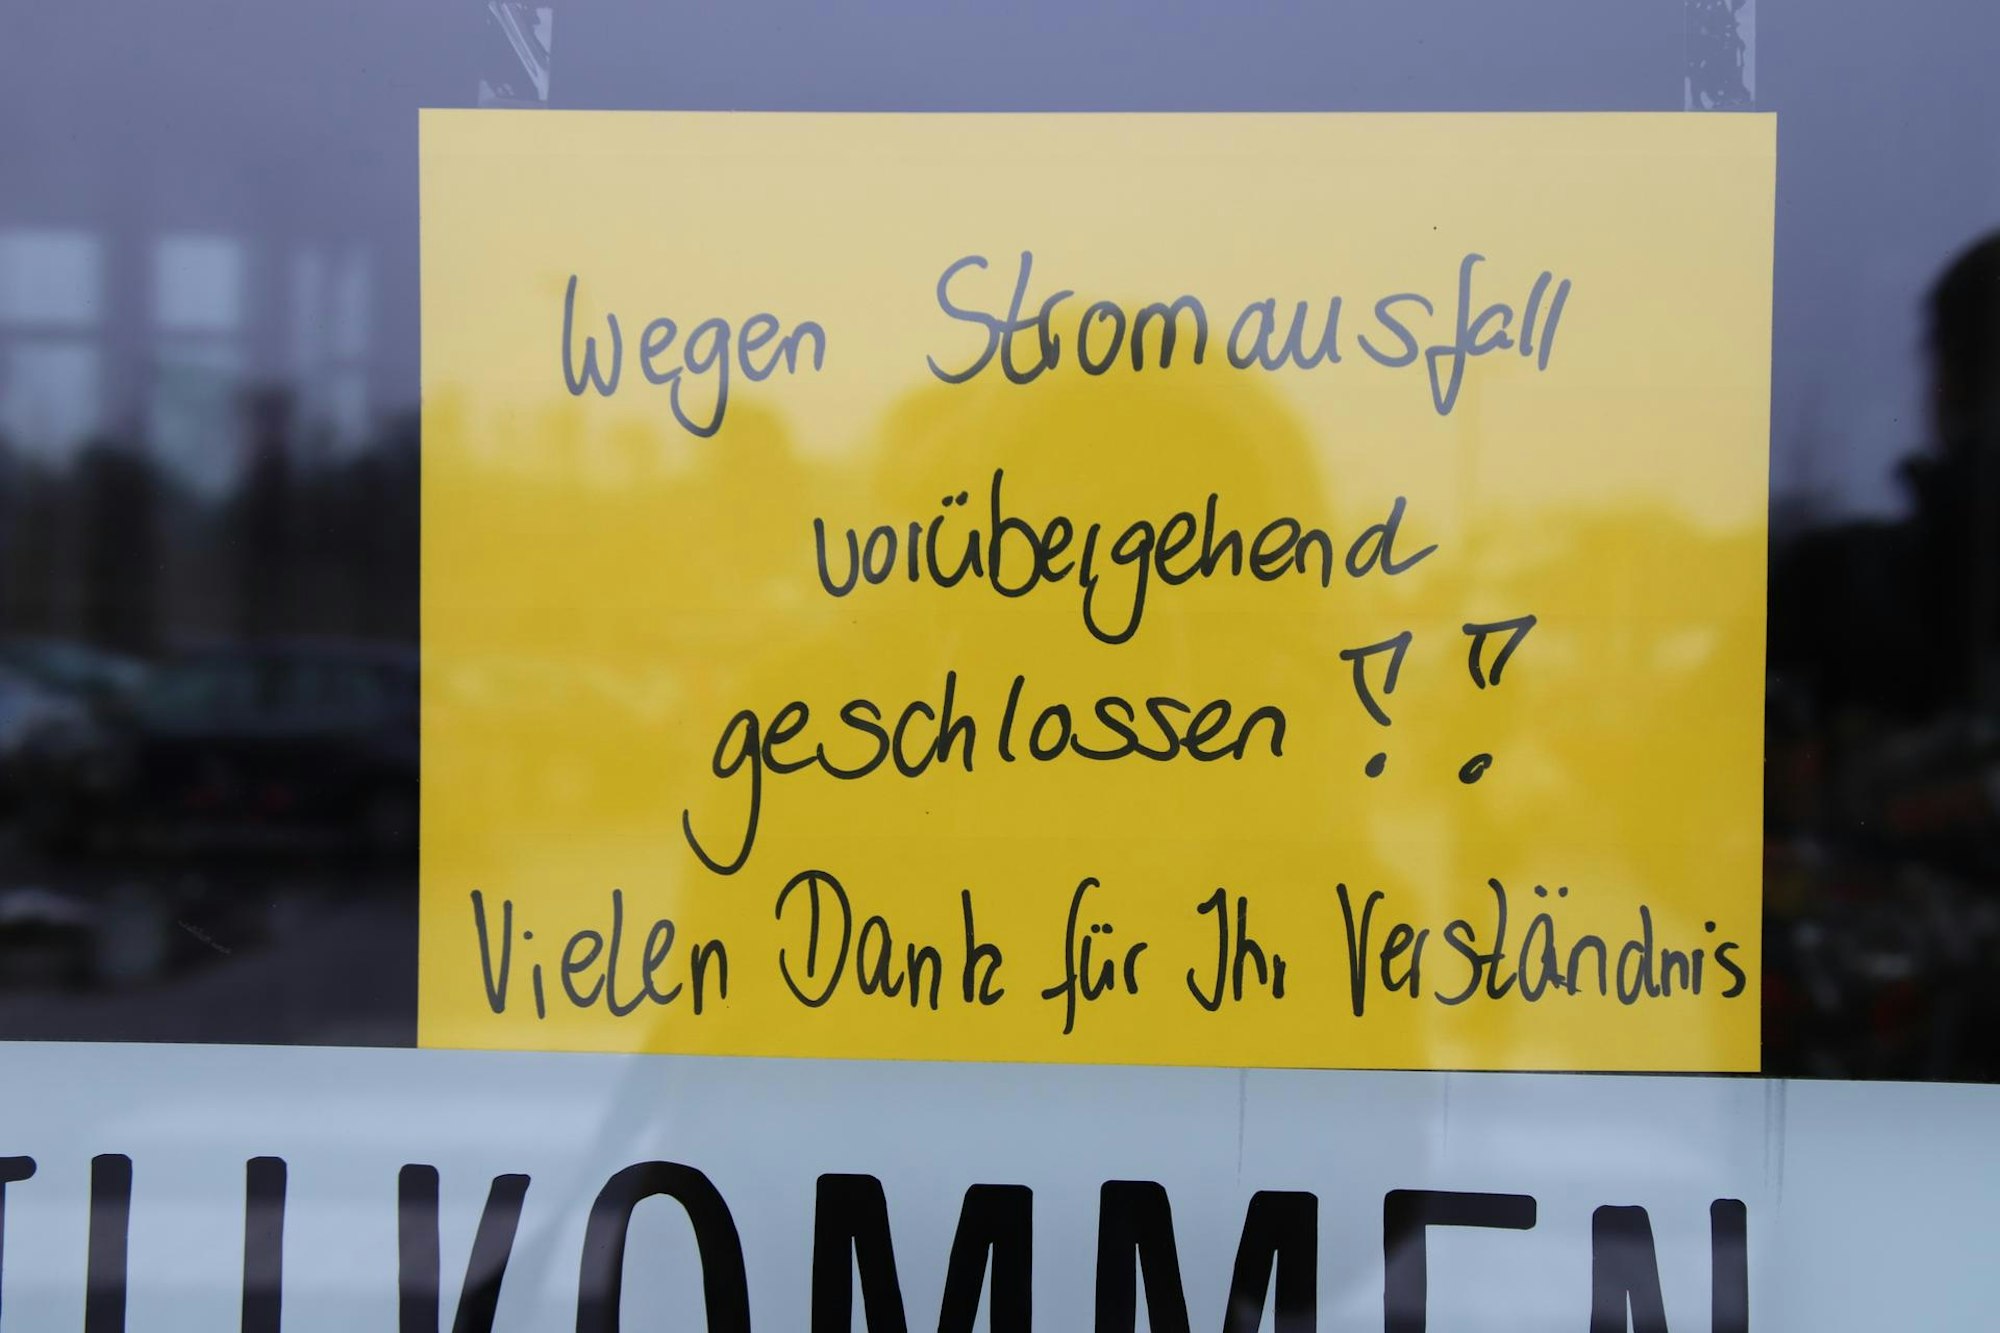 Wegen Stromausfall
vorübergehend
geschlossen !!
Vielen Dank für Ihr Verständnis
WILLKOMMEN